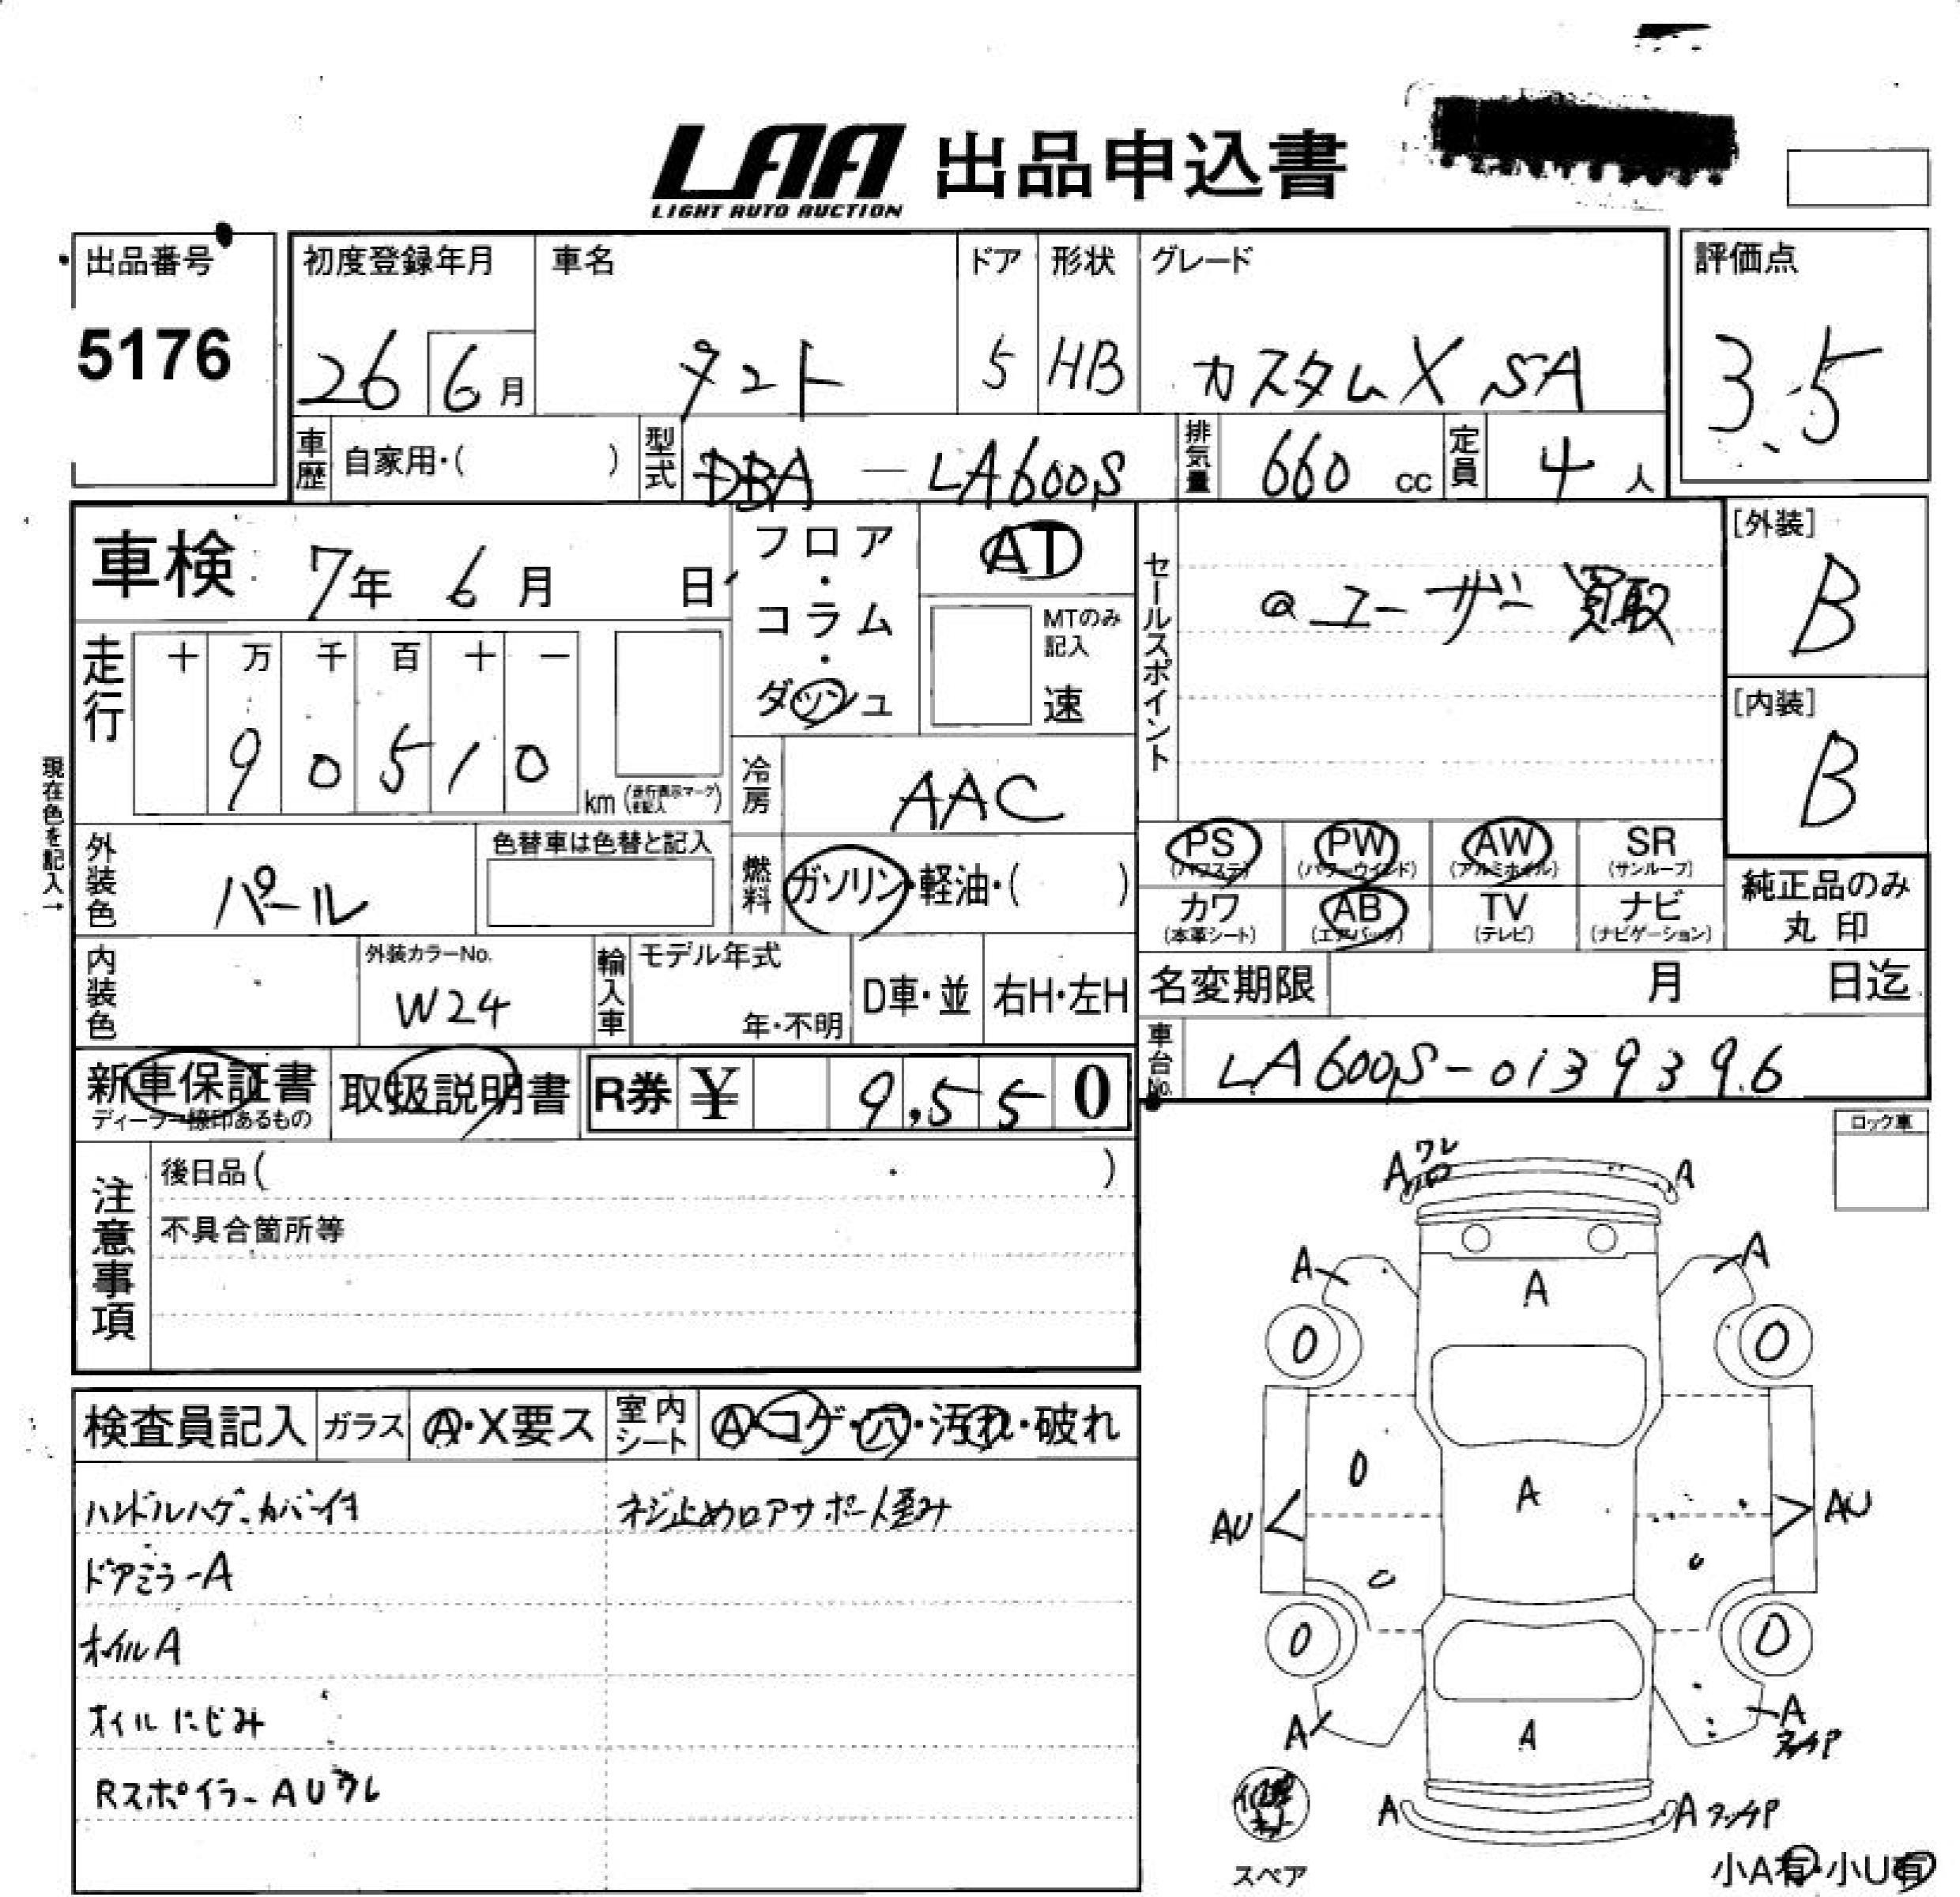 LAA 出品申込書
LIGHT AUTO AUCTION
出品番号
5176
初度登録年月 車名 ドア 形状 グレード
26 6月 タント 5 HB カスタムX SA
評価点
3.5
車歴 自家用・( ) 型式 DBA － LA600S 排気量 660 cc 定員 4 人
車検 7年 6月 日
フロア・コラム・ダッシュ
AT
MTのみ記入
速
セールスポイント
ユーザー買取
[外装]
B
[内装]
B
走行 十 万 千 百 十 一
9 0 5 1 0 km (走行表示マーク 要記入)
現在色を記入→
冷房 AAC
外装色 パール
色替車は色替と記入
燃料 ガソリン・軽油・( )
PS (パワステ) PW (パワーウインド) AW (アルミホイル) SR (サンルーフ)
カワ (本革シート) AB (エアバック) TV (テレビ) ナビ (ナビゲーション)
純正品のみ
丸印
内装色
外装カラーNo.
W24
輸入車 モデル年式 年・不明 D車・並 右H・左H
名変期限 月 日迄
新車保証書
ディーラー捺印あるもの
取扱説明書
R券 ¥ 9,550
車台No. LA600S-0139396
注意事項
後日品( )
不具合箇所等
ロック車
検査員記入 ガラス A・X要ス 室内シート A・コゲ・穴・汚れ・破れ
ハンドルハゲ、カバー付 ネジ止めロアサポート歪み
ドアミラーA
ホイルA
オイルにじみ
Rスポイラー AUワレ
Aワレ A
A A
A
0 0
0 A
AU AU
0 0
A A
A
A A
スペア
小A有・小U有